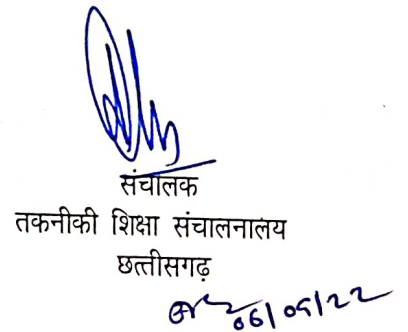 संचालक
तकनीकी शिक्षा संचालनालय
छत्तीसगढ़
06/05/22